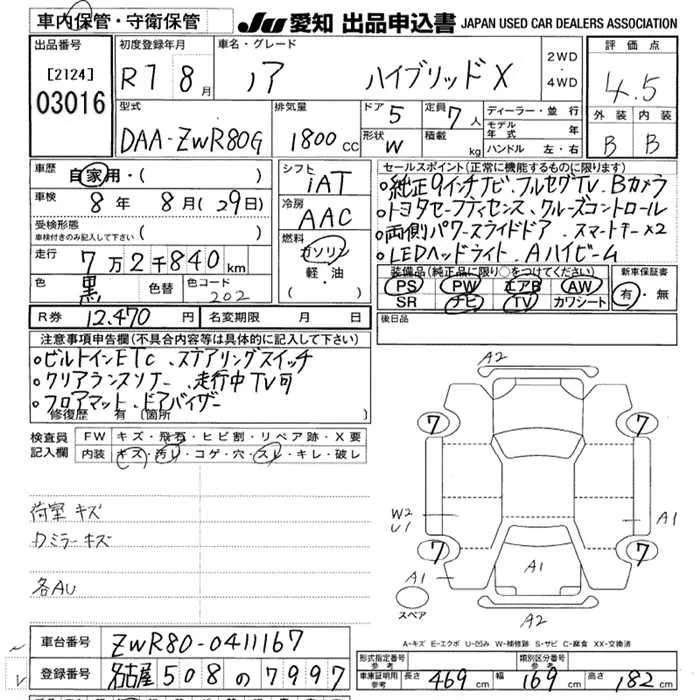 車内保管・守衛保管
JU 愛知 出品申込書 JAPAN USED CAR DEALERS ASSOCIATION
出品番号
[2124]
03016
初度登録年月
R7 8月
車名・グレード
ノア ハイブリッドX
2WD
・
4WD
評価点
4.5
外装 内装
B B
型式
DAA-ZWR80G
排気量
1800cc
ドア
5
定員
7人
形状
W
積載
kg
ディーラー・並行
モデル年式 年
ハンドル 左・右
車歴
自家用・( )
車検
8年 8月(29日)
受検形態
車検付きのみ記入して下さい ( )
走行
7万2千840km
色
黒
色替
色コード
202
シフト
iAT
冷房
AAC
燃料
ガソリン
軽・油
( ・ )
セールスポイント(正常に機能するものに限ります)
○純正9インチナビ、フルセグTV、Bカメラ
○トヨタセーフティセンス、クルーズコントロール
○両側パワースライドドア、スマートキー×2
○LEDヘッドライト、Aハイビーム
装備品(純正品に限り○をつけてください)
PS PW エアB AW
SR ナビ TV カワシート
新車保証書
有・無
R券 12,470円
名変期限 月 日
後日品
注意事項申告欄(不具合内容等は具体的に記入して下さい)
○ビルトインETC、ステアリングスイッチ
○クリアランスソナー、走行中TV可
○フロアマット、ドアバイザー
修復歴 有〔箇所 〕
検査員記入欄
FW キズ・飛石・ヒビ割・リペア跡・X要
内装 キズ・汚レ・コゲ・穴・スレ・キレ・破レ
荷室キズ
Dミラーキズ
各AU
A2
7 7
W2
U1
A1
7 7
A1
A1
スペア
A2
A-キズ E-エクボ U-凹み W-補修跡 S-サビ C-腐食 XX-交換済
車台番号 ZWR80-0411167
登録番号 名古屋 508 の 7997
形式指定番号
参考
類別区分番号
参考
車庫証明用
参考
長さ 469cm 幅 169cm 高さ 182cm